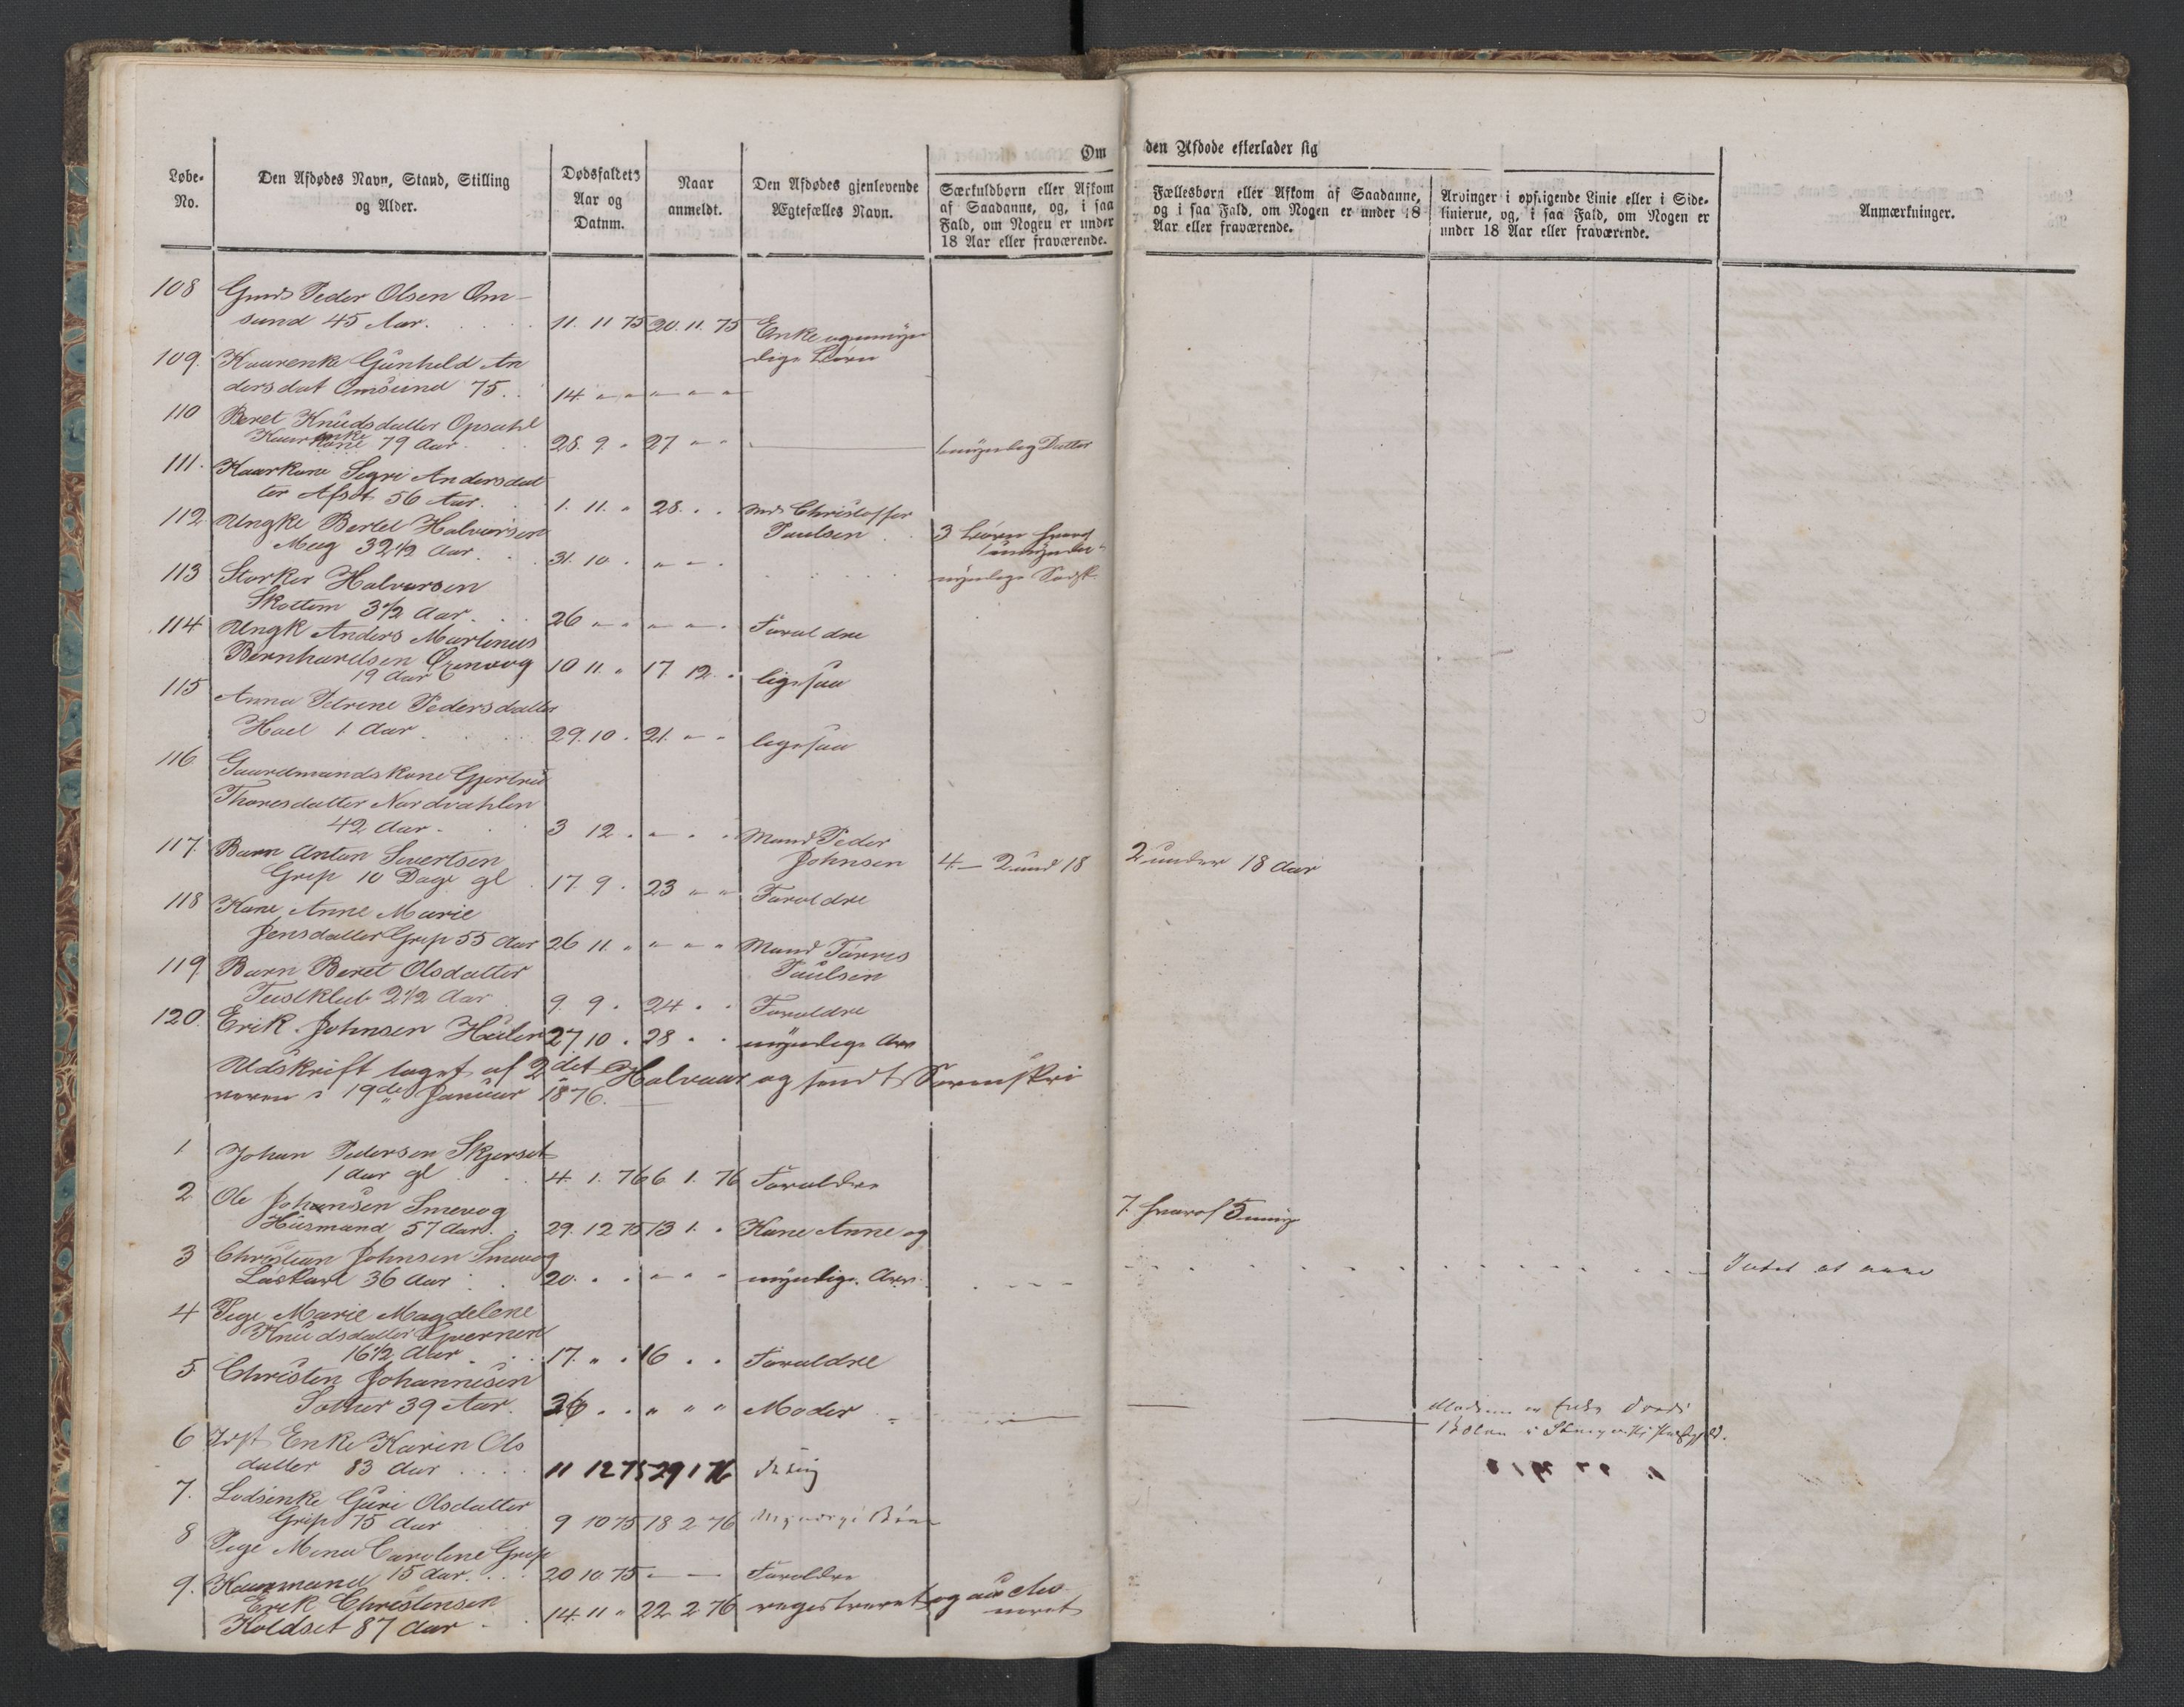 Om den Afdøde efterlader sig
Løbe-
No.
Den Afdødes Navn, Stand, Stilling
og Alder.
Dødsfaldets
Aar og
Datum.
Naar
anmeldt.
Den Afdødes gjenlevende
Ægtefælles Navn.
Særkuldbørn eller Afkom
af Saadanne, og, i saa
Fald, om Nogen er under
18 Aar eller fraværende.
Fællesbørn eller Afkom af Saadanne,
og i saa Fald, om Nogen er under 18
Aar eller fraværende.
Arvinger i opstigende Linie eller i Side-
linierne, og, i saa Fald, om Nogen er
under 18 Aar eller fraværende.
Anmærkninger.
108 Gmd Peder Olsen Om-
sund 45 Aar. 11. 11 75 20. 11. 75 Enke og umyn
dige Børn
109. Kaarenke Gunhild An
dersdat Omsund 75. 14. " " " " "
110 Beret Knudsdatter Opsahl
Kaarenke 79 Aar 28. 9. " 27 " " 1 myndig Datter
111. Kaarkone Segri Andersdat
ter Afset 56 Aar. 1. 11. " 28. " " Md Christoffer
Paulsen 3 Børn hvoraf
112 Ungk Bertel Halvorsen
Meeg 32 1/2 Aar 31. 10. " " " myndige Sødsk.
113 Storker Halvorsen
Skottem 3 1/2 Aar. 26 " " " " " Forældre
114 Ungk Anders Martinus
Bernhardsen
19 Aar 10 11. " 17. 12. " ligesaa
115 Anna Petrine Pedersdatter
Hoel 1 Aar 29. 10. 21. " " ligesaa
116 Gaardmandskone Gjertrud
Thoresdatter Nordvahlen
42 Aar. 3 12. " " " Mand Peder
Johnsen 4 - 2 und 18 2 under 18 Aar
117. Barn Anton Sivertsen
Grip 10 Dage gl 17. 9. 23 " " Forældre
118 Kone Anne Marie
Jensdatter Grip 55 Aar 26 11. " " " " Mand Tørres
Paulsen
119. Barn Beret Olsdatter
Tustklub 2 1/2 Aar 9. 9. 24 " " Forældre
120. Erik Johnsen Hulen 27 10. 28 " " myndige Arv
Udskrift taget af 2det Halvaar og sendt Sorenskri
veren d 19de Januar 1876.
1 Johan Pedersen Skjerset
1 Aar gl 4. 1. 76 6. 1. 76 Forældre
2 Ole Johansen Smevog
Husmand 57 Aar. 29. 12 75 13 1. " Kone Anne og 7. hvoraf 5 umyn
3 Christian Johnsen Smevog
Løskarl 36 Aar 20. " " " " " myndige Arv. Intet at arve
4 Pige Marie Magdelene
Knudsdatter
16 1/2 Aar 17. " " 16 " " Forældre
5 Christen Johannesen
39 Aar. 26 " " " " " Moder
6 Enke Karin Ols
datter 83 Aar 11 12 75 29 1 76
7. Lodsenke Guri Olsdatter
Grip 75 Aar 9 10 75 18 2 76 Myndige Børn
8 Pige Mena Caroline Grip
15 Aar. 20 10. 75 " " Forældre
9. Kaarmand
Erik Christensen
Koldset 87 Aar 14. 11 " 22. 2 76 registreret og auctio
neret